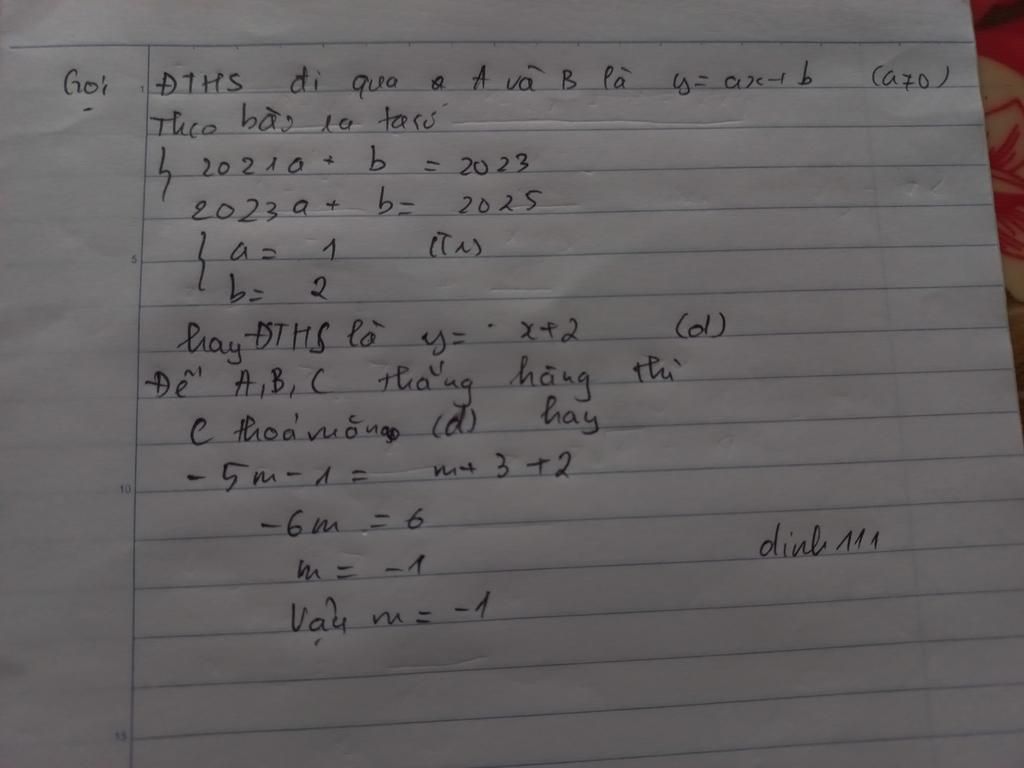 Gọi ĐTHS đi qua A và B là y = ax + b (a≠0)
Theo bài ra ta có
{ 2021a + b = 2023
2023a + b = 2025
{ a = 1 (TM)
b = 2
hay ĐTHS là y = x + 2 (d)
Để A, B, C thẳng hàng thì
C thoả mãn (d) hay
- 5m - 1 = m + 3 + 2
-6m = 6
m = -1
Vậy m = -1
dinh 111
5
10
15